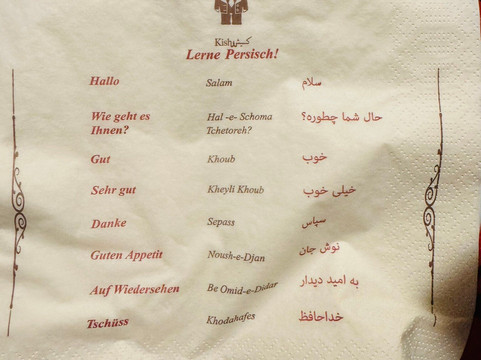 Kish کیش
Lerne Persisch!
Hallo Salam سلام
Wie geht es Ihnen? Hal -e- Schoma Tchetoreh? حال شما چطوره؟
Gut Khoub خوب
Sehr gut Kheyli Khoub خیلی خوب
Danke Sepass سپاس
Guten Appetit Noush-e-Djan نوش جان
Auf Wiedersehen Be Omid-e-Didar به امید دیدار
Tschüss Khodahafes خداحافظ